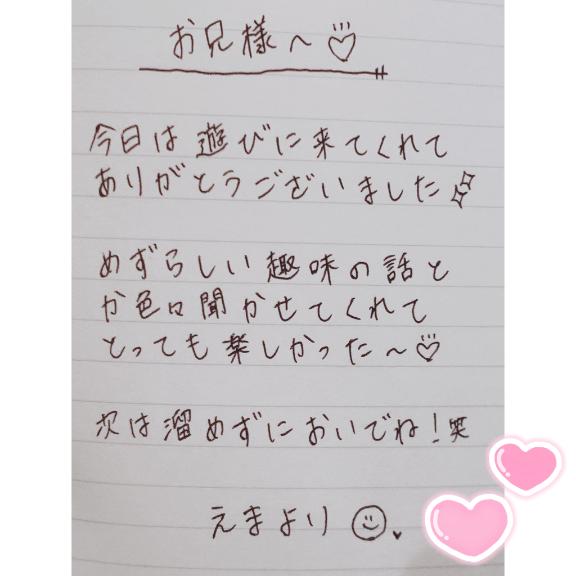 お兄様へ♡
今日は遊びに来てくれて
ありがとうございました
めずらしい趣味の話と
か色々聞かせてくれて
とっても楽しかった〜♡
次は溜めずにおいでね！笑
えまより